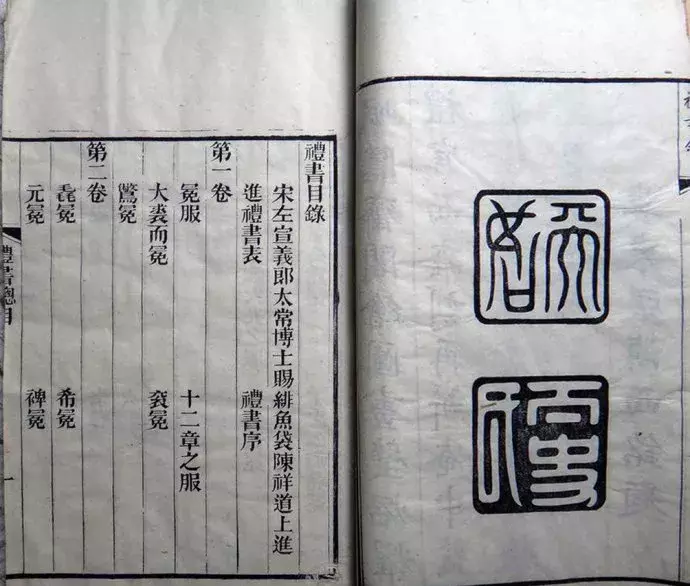 禮書目錄
宋左宣義郎太常博士賜緋魚袋陳祥道上進
進禮書表　禮書序
第一卷
冕服　十二章之服
大裘而冕　衮冕
鷩冕
第二卷
毳冕　希冕
元冕　裨冕
禮書總目　一